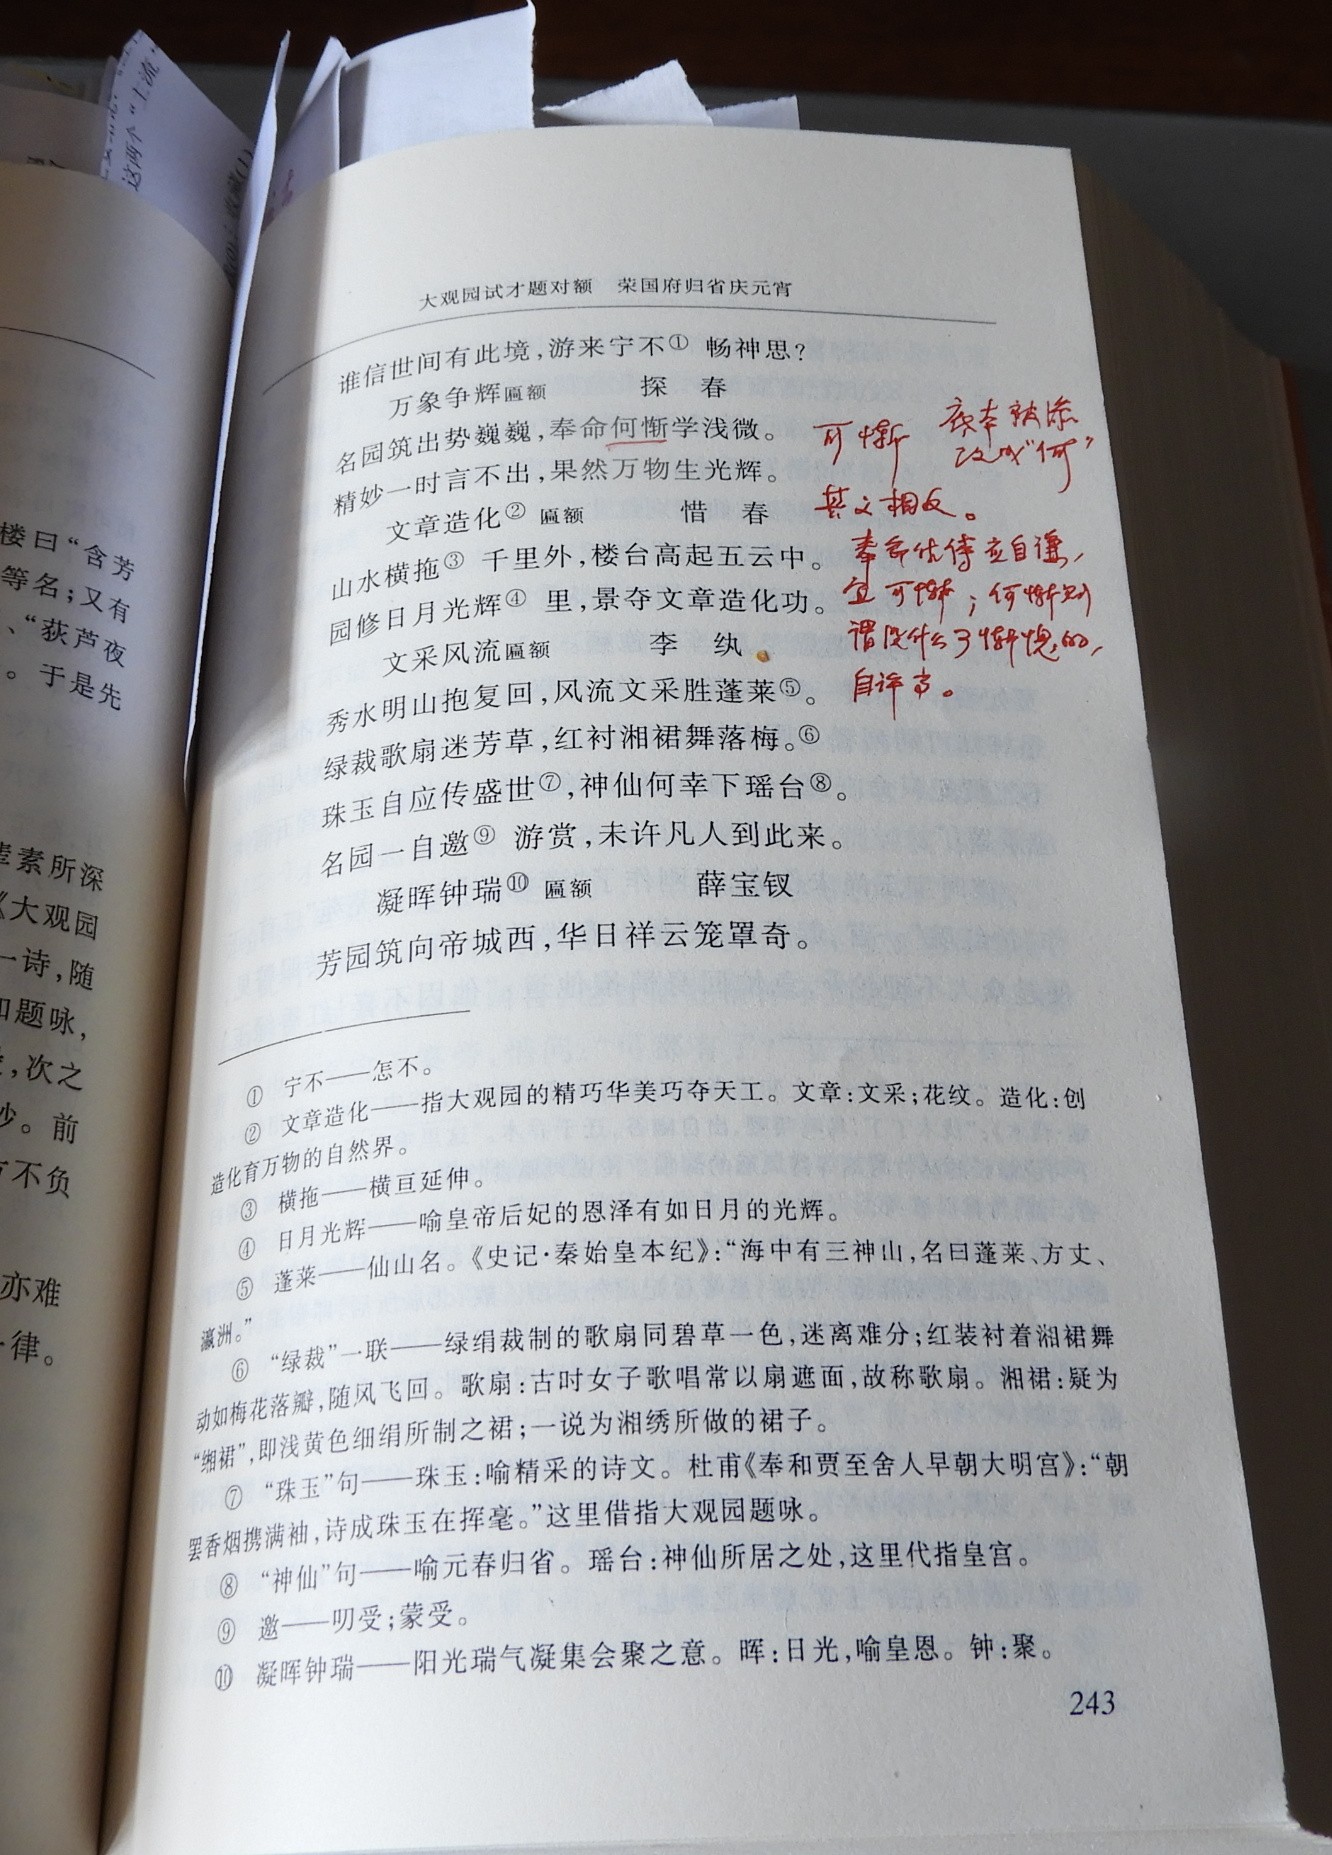 这两个“上流”
楼曰“含芳
等名；又有
、“荻芦夜
。于是先
辈素所深
《大观园
一诗，随
和题咏，
，次之
妙。前
方不负
亦难
律。
大观园试才题对额　荣国府归省庆元宵
谁信世间有此境，游来宁不① 畅神思？
万象争辉匾额　探　春
名园筑出势巍巍，奉命何惭学浅微。
精妙一时言不出，果然万物生光辉。
文章造化② 匾额　惜　春
山水横拖③ 千里外，楼台高起五云中。
园修日月光辉④ 里，景夺文章造化功。
文采风流匾额　李　纨
秀水明山抱复回，风流文采胜蓬莱⑤。
绿裁歌扇迷芳草，红衬湘裙舞落梅。⑥
珠玉自应传盛世⑦，神仙何幸下瑶台⑧。
名园一自邀⑨ 游赏，未许凡人到此来。
凝晖钟瑞⑩ 匾额　薛宝钗
芳园筑向帝城西，华日祥云笼罩奇。
可惭　底本被添
改成“何”
其义相反。
奉命优待应自谦，
宜可惭；何惭则
谓没什么了惭愧的，
自许高。
① 宁不——怎不。
② 文章造化——指大观园的精巧华美巧夺天工。文章：文采；花纹。造化：创
造化育万物的自然界。
③ 横拖——横亘延伸。
④ 日月光辉——喻皇帝后妃的恩泽有如日月的光辉。
⑤ 蓬莱——仙山名。《史记·秦始皇本纪》：“海中有三神山，名曰蓬莱、方丈、
瀛洲。”
⑥ “绿裁”一联——绿绢裁制的歌扇同碧草一色，迷离难分；红装衬着湘裙舞
动如梅花落瓣，随风飞回。歌扇：古时女子歌唱常以扇遮面，故称歌扇。湘裙：疑为
“缃裙”，即浅黄色细绢所制之裙；一说为湘绣所做的裙子。
⑦ “珠玉”句——珠玉：喻精采的诗文。杜甫《奉和贾至舍人早朝大明宫》：“朝
罢香烟携满袖，诗成珠玉在挥毫。”这里借指大观园题咏。
⑧ “神仙”句——喻元春归省。瑶台：神仙所居之处，这里代指皇宫。
⑨ 邀——叨受；蒙受。
⑩ 凝晖钟瑞——阳光瑞气凝集会聚之意。晖：日光，喻皇恩。钟：聚。
243